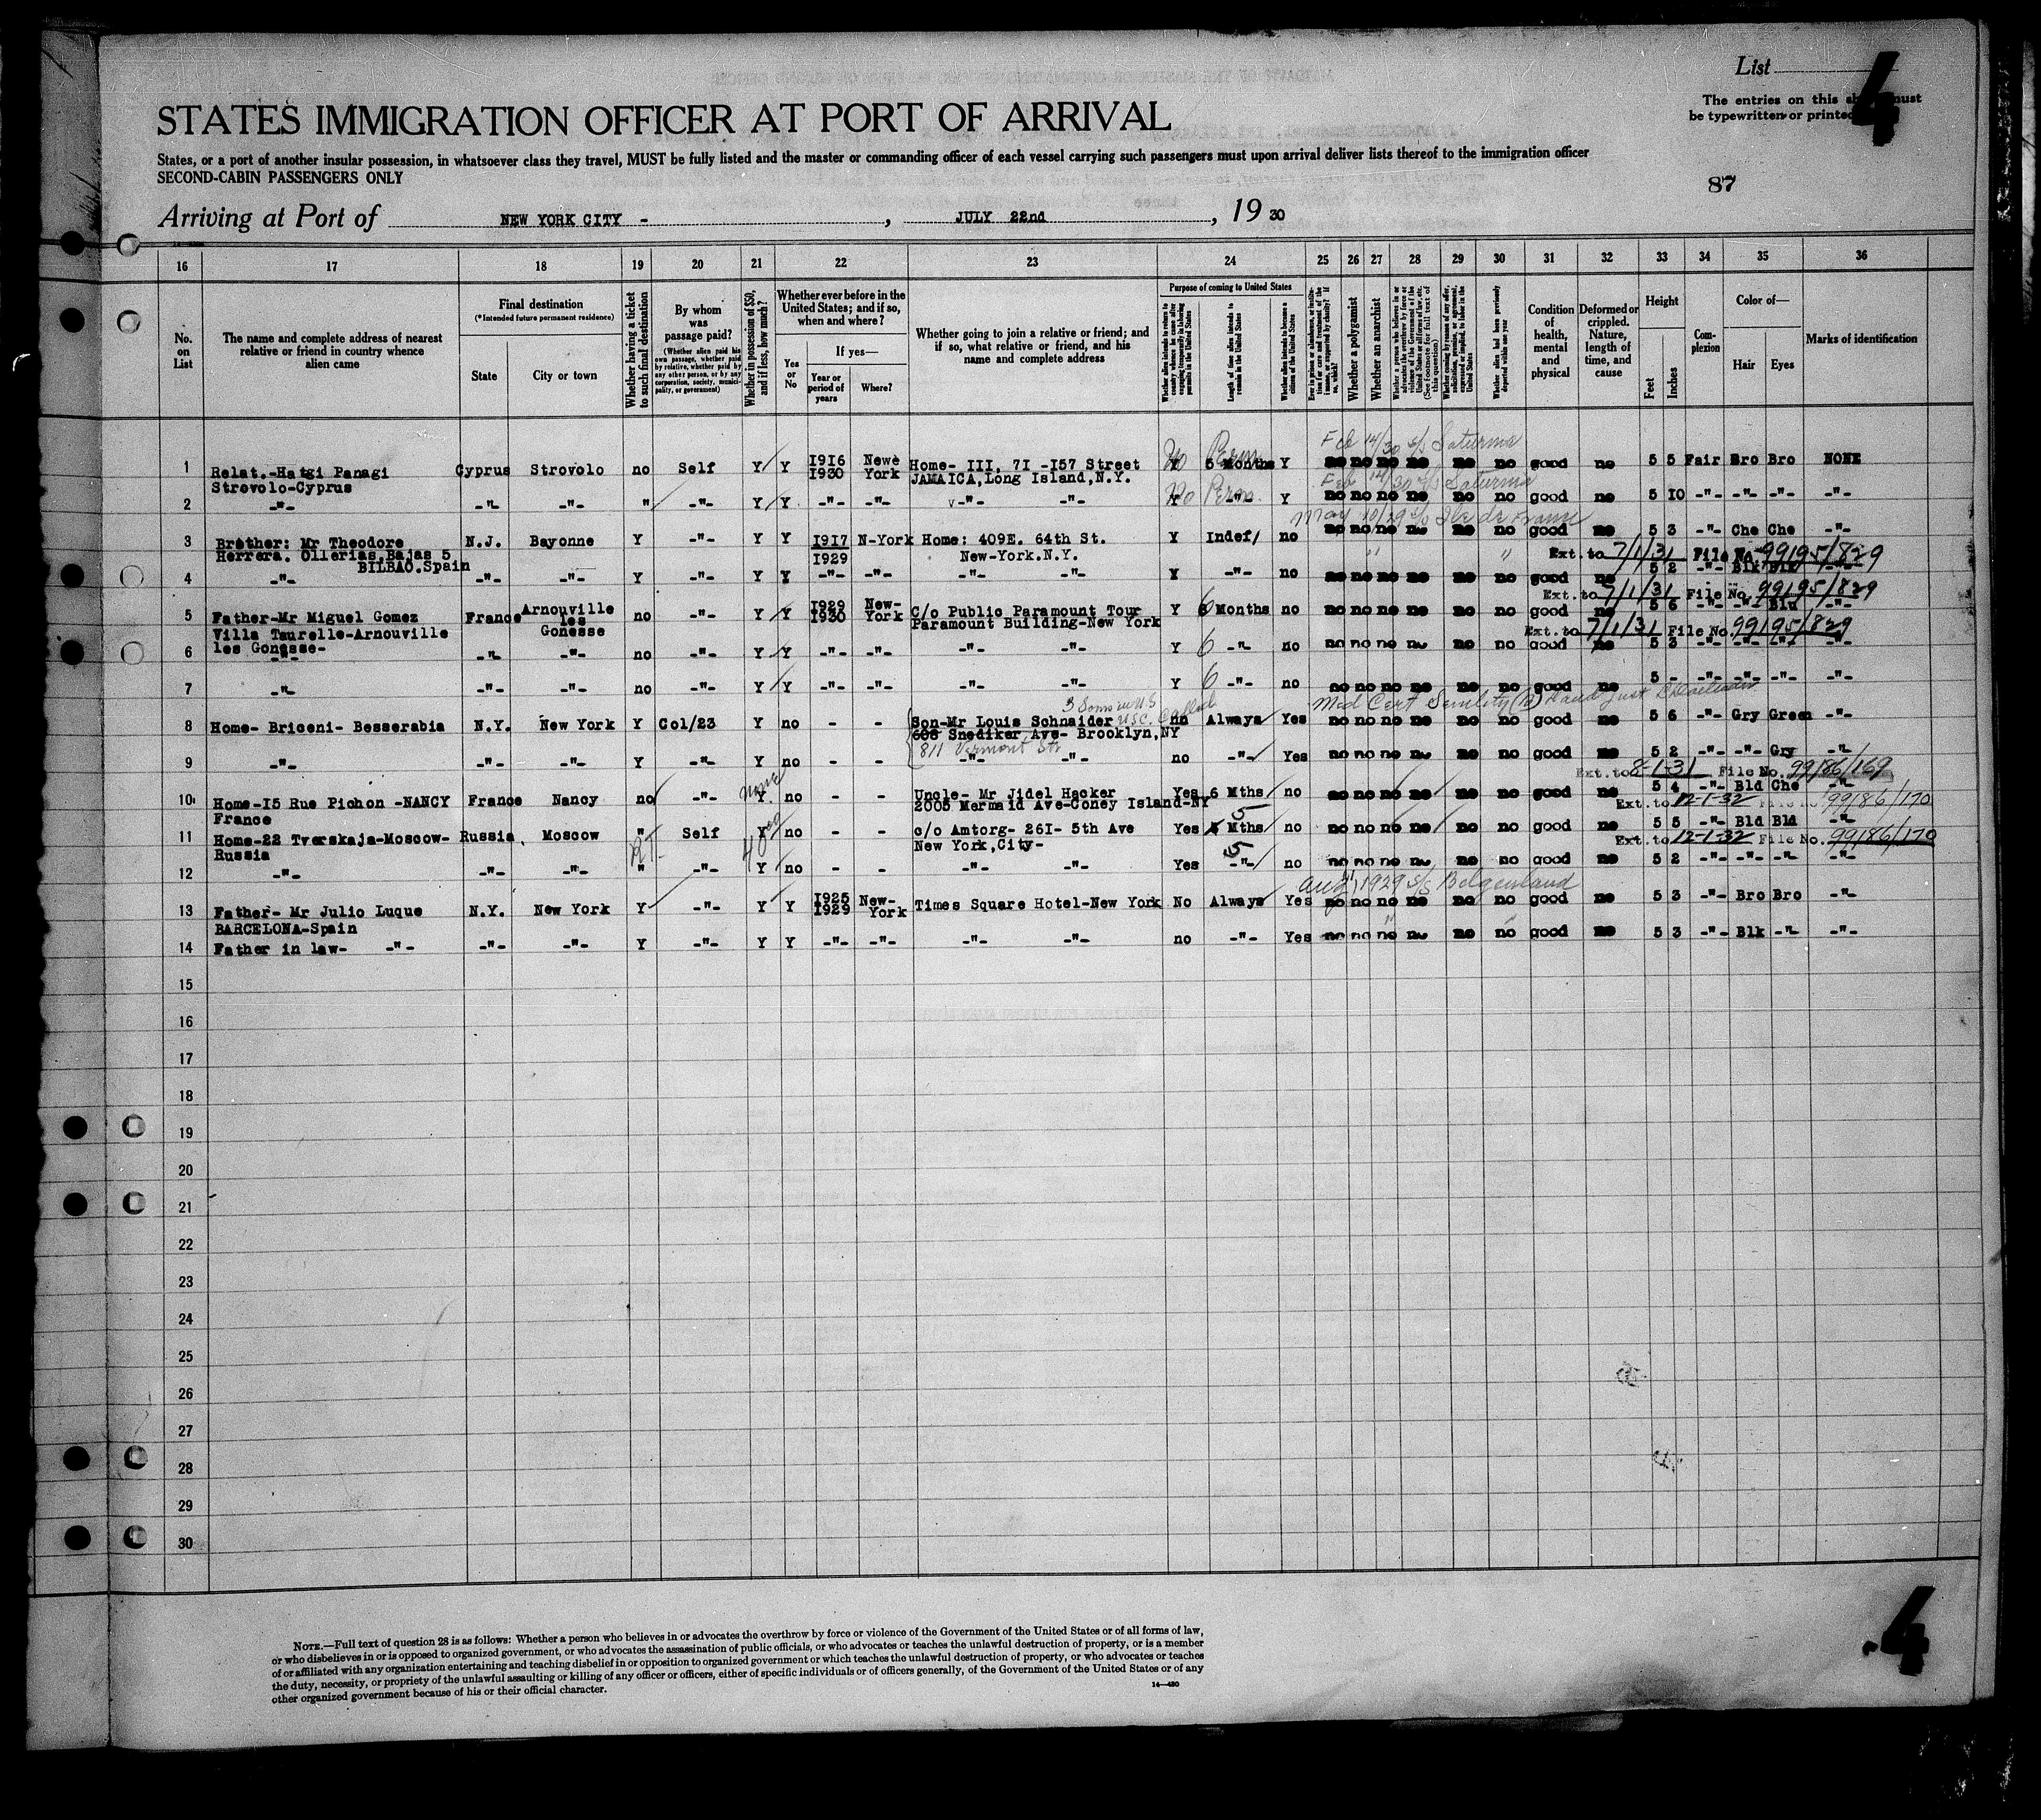 List
4
The entries on this sheet must
be typewritten or printed
STATES IMMIGRATION OFFICER AT PORT OF ARRIVAL
States, or a port of another insular possession, in whatsoever class they travel, MUST be fully listed and the master or commanding officer of each vessel carrying such passengers must upon arrival deliver lists thereof to the immigration officer
SECOND-CABIN PASSENGERS ONLY
87
Arriving at Port of NEW YORK CITY - , JULY 22nd , 19 30
16 17 18 19 20 21 22 23 24 25 26 27 28 29 30 31 32 33 34 35 36
No. on List
The name and complete address of nearest relative or friend in country whence alien came
Final destination
(*Intended future permanent residence)
State
City or town
Whether having a ticket to such final destination
By whom was passage paid?
(Whether alien paid his own passage, whether paid by relative, whether paid by any other person, or by any corporation, society, municipality, or government)
Whether in possession of $50, and if less, how much?
Whether ever before in the United States; and if so, when and where?
Yes or No
If yes—
Year or period of years
Where?
Whether going to join a relative or friend; and if so, what relative or friend, and his name and complete address
Purpose of coming to United States
Whether alien intends to return to country whence he came after engaging temporarily in laboring pursuits in the United States
Length of time alien intends to remain in the United States
Whether alien intends to become a citizen of the United States
Whether a polygamist
Whether an anarchist
Whether alien had been previously deported within one year
Condition of health, mental and physical
Deformed or crippled. Nature, length of time, and cause
Height
Feet
Inches
Complexion
Color of—
Hair
Eyes
Marks of identification
Feb 14/30 s/s Saturnia
No Perm
1 Relat.-Hatgi Panagi Cyprus Strovolo no Self Y Y 1916 1930 Newè York Home- III, 7I -I57 Street Y 6 Months Y no no no no no no good no 5 5 Fair Bro Bro NONE
Strovolo-Cyprus JAMAICA,Long Island,N.Y.
Feb 14/30 s/s Saturnia
No Perm
2 -"- -"- -"- " -"- Y Y -"- -"- v-"- -"- Y -"- Y no no no no no no good no 5 10 -"- -"- -"- -"-
May 10/29 s/s Ile de France
3 Brother: Mr Theodore N.J. Bayonne Y -"- Y Y 1917 N-York Home: 409E. 64th St. Y Indef/ no no no no no no no good no 5 3 -"- Che Che -"-
Herrera. Ollerias,Bajas 5 1929 New-York.N.Y.
BILBAO.Spain
Ext. to 7/1/31 File No. 99195/829
4 -"- -"- -"- Y -"- Y Y -"- -"- -"- -"- Y -"- no no no no no no no good no 5 2 -"- Blk Blk -"-
Ext. to 7/1/31 File No. 99195/829
5 Father-Mr Miguel Gomez France Arnouville les Gonesse no -"- Y Y 1929 1930 New-York C/o Public Paramount Tour Y 6 Months no no no no no no no good no 5 6 -"- -"- Blu -"-
Villa Taurelle-Arnouville Paramount Building-New York
les Gonesse-
Ext. to 7/1/31 File No. 99195/829
6 -"- -"- -"- no -"- Y Y -"- -"- -"- -"- Y 6 -"- no no no no no no no good no 5 3 -"- -"- -"- -"-
7 -"- -"- -"- no -"- Y Y -"- -"- -"- -"- Y 6 -"- no no no no no no no good no 5 - -"- -"- -"- -"-
3 Sons in U.S
U.S.C. Called
Med Cert Senility
8 Home- Briceni- Besserabia N.Y. New York Y Col/23 Y no - - Son-Mr Louis Schnaider no Always Yes no no no no no no good no 5 6 -"- Gry Green -"-
608 Snediker Ave- Brooklyn,NY
811 Vermont St
9 -"- -"- -"- Y -"- Y no - - -"- -"- no -"- Yes no no no no no no good no 5 2 -"- -"- Gry -"-
Ext. to 8-1-31 File No. 99186/169
10 Home-I5 Rue Pichon -NANCY France Nancy no -"- none Y no - - Uncle- Mr Jidel Hacker Yes 6 Mths no no no no no no no good no 5 4 -"- Bld Che -"-
France 2005 Mermaid Ave-Coney Island-NY
Ext. to 12-1-32 File No. 99186/170
11 Home-22 Tverskaja-Moscow- Russia Moscow " Self Y no - - c/o Amtorg- 26I- 5th Ave Yes 5 Mths no no no no no no no good no 5 5 -"- Bld Bld -"-
Russia New York,City-
Ext. to 12-1-32 File No. 99186/170
12 -"- -"- -"- " -"- Y no - - -"- -"- Yes 5 -"- no no no no no no no good no 5 2 -"- -"- -"- -"-
Aug 1929 s/s Belgenland
13 Father- Mr Julio Luque N.Y. New York Y -"- Y Y 1925 1929 New-York Times Square Hotel-New York No Always Yes no no no no no no good no 5 3 -"- Bro Bro -"-
BARCELONA-Spain
14 Father in law- -"- -"- -"- Y -"- Y Y -"- -"- -"- -"- no -"- Yes no no no no no no good no 5 3 -"- Blk -"- -"-
15
16
17
18
19
20
21
22
23
24
25
26
27
28
29
30
NOTE.—Full text of question 28 is as follows: Whether a person who believes in or advocates the overthrow by force or violence of the Government of the United States or of all forms of law,
or who disbelieves in or is opposed to organized government, or who advocates the assassination of public officials, or who advocates or teaches the unlawful destruction of property, or is a member
of or affiliated with any organization entertaining and teaching disbelief in or opposition to organized government or which teaches the unlawful destruction of property, or who advocates or teaches
the duty, necessity, or propriety of the unlawful assaulting or killing of any officer or officers, either of specific individuals or of officers generally, of the Government of the United States or of any
other organized government because of his or their official character.
14—430
4